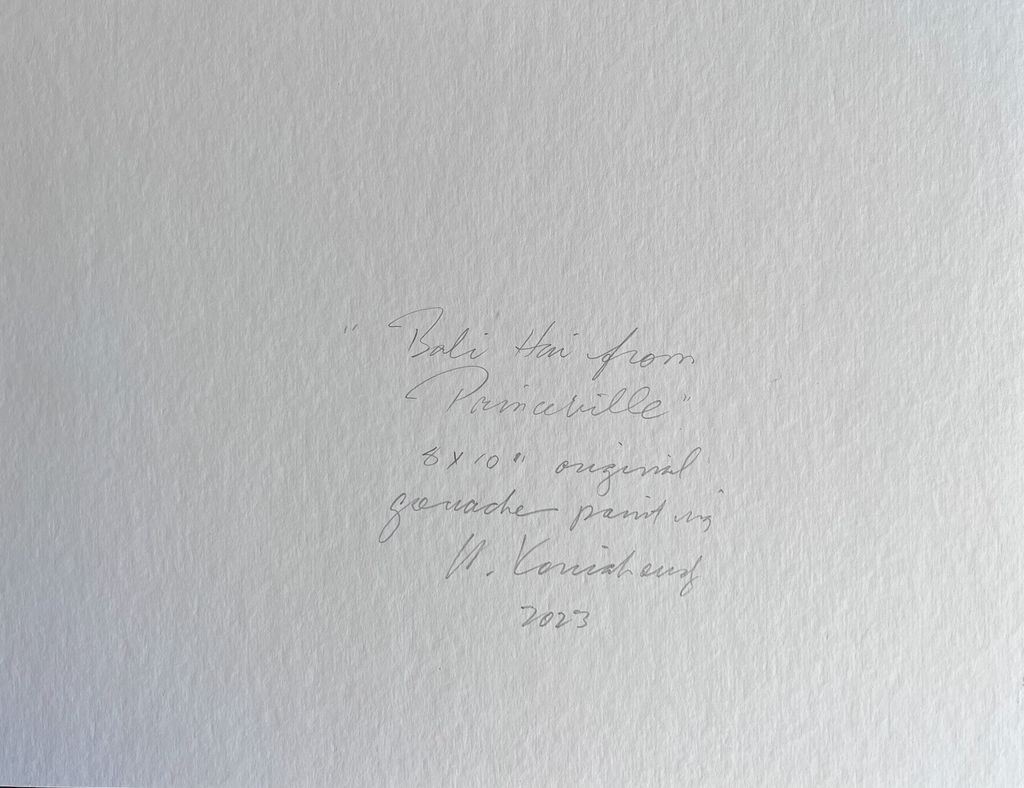 " Bali Hai from
Princeville"
8 x 10" original
gouache painting
2023